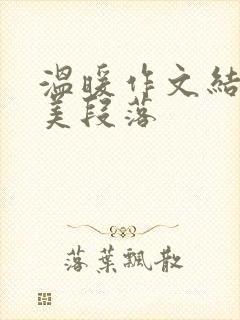 温暖作文結
美段落
落葉飄散